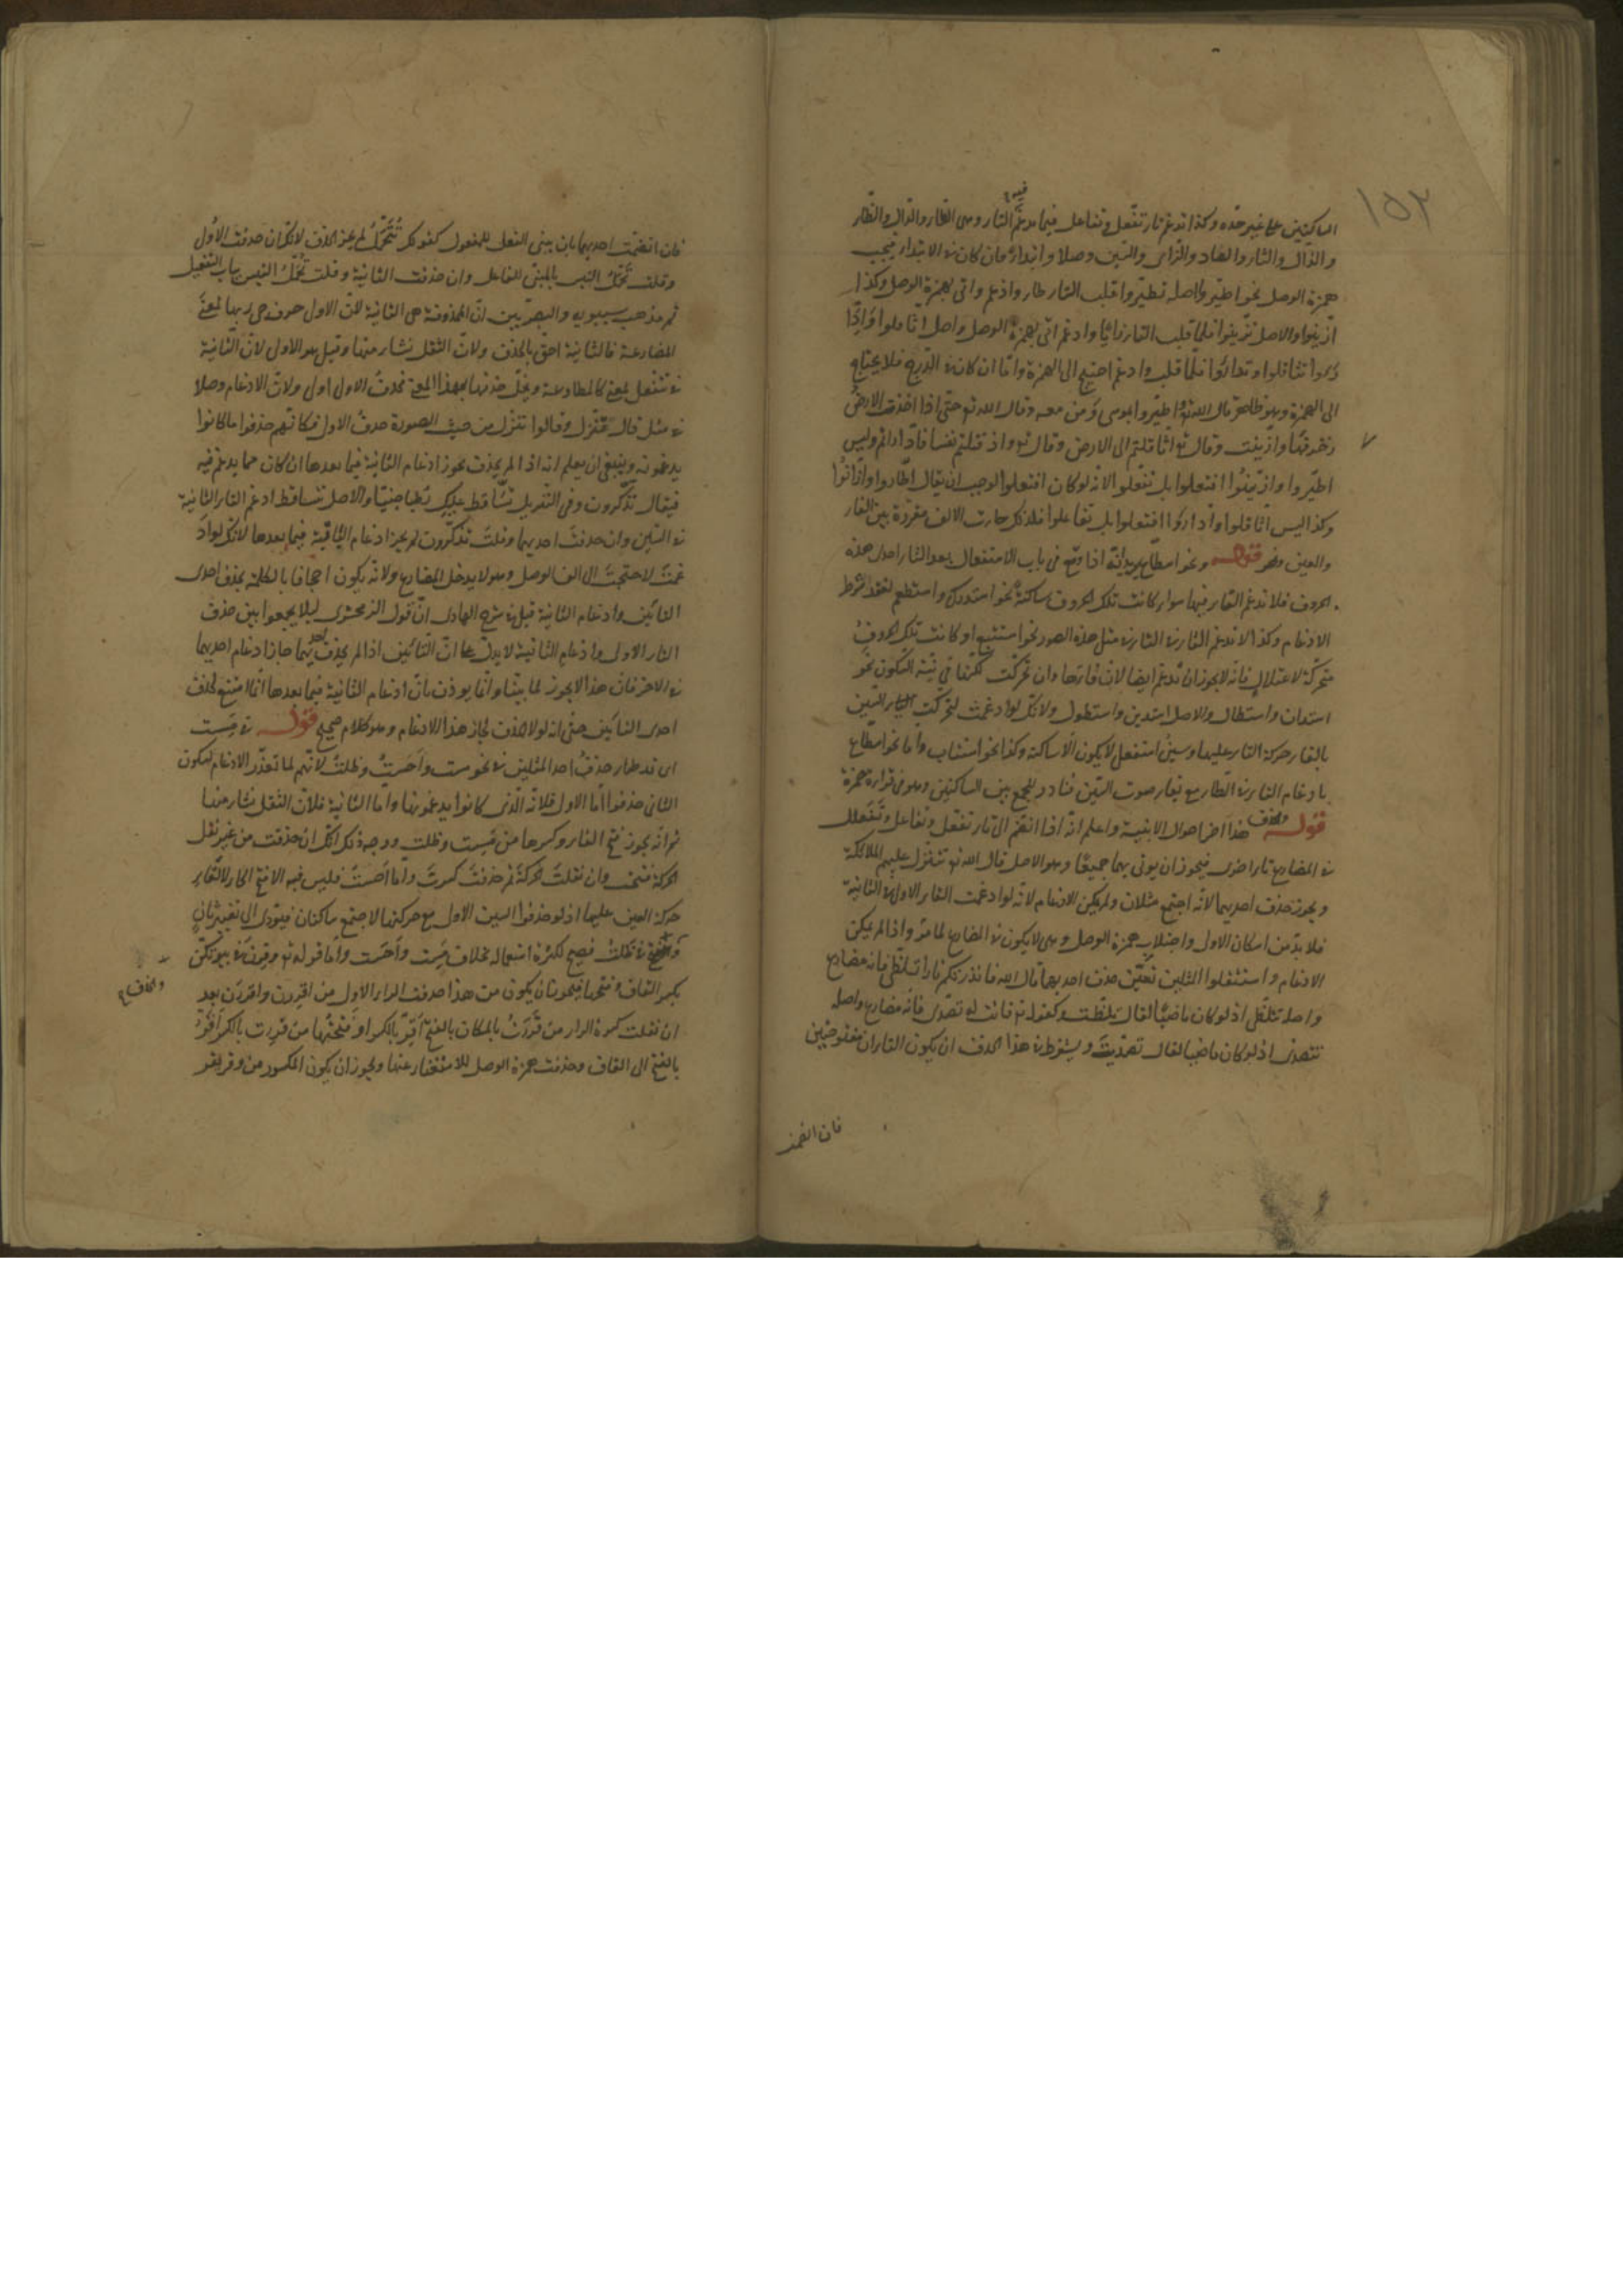 ١٥٢
الساكنين على غير حدّه وكذا تدغم تاء تفعّل وتفاعل فيما تدغم فيه التاء وهى الطاء والدال والظاء
والذال والثاء والصاد والزاى والسين وصلا وابتداء فان كان فى الابتداء فيجب
همزة الوصل نحو اطيّروا اصله تطيّروا قلبت التاء طاء وادغم واتى بهمزة الوصل وكذا
ازّينوا والاصل تزينوا فلما قلبت التاء زايا وادغم اتى بهمزة الوصل واصل اثاقلوا وادّا
رءوا تثاقلوا وتدارئوا فلما قلب وادغم احتيج الى الهمزة واما ان كان فى الدرج فلا يحتاج
الى الهمزة وهو ظاهر قال الله تع اطيّروا بموسى ومن معه وقال الله تع حتى اذا اخذت الارض
زخرفها وازّينت وقال تع اثاقلتم الى الارض وقال تع واذ قتلتم نفسا فادّاراتم وليس
اطيّروا وازّينوا افتعلوا بل تفعلوا لانه لو كان افتعلوا لوجب ان يقال اطّاروا وازّانوا
وكذا ليس اثاقلوا وادارؤا افتعلوا بل تفاعلوا فلذلك جاءت الالف مفردة بين الفاء
والعين قوله ونحو اسطاع يريد انه اذا وقع فى باب الاستفعال بعد التاء احدى هذه
الحروف فلا تدغم التاء فيها سواء كانت تلك الحروف ساكنة نحو استدرك واستطعم لفقد شرط
الادغام وكذا لا تدغم التاء فى التاء فى مثل هذه الصور نحو استتبع او كانت تلك الحروف
متحركة لاعتلال فانه لا يجوز ان تدغم ايضا لان فاءها وان تحركت لكنها فى نية السكون نحو
استدان واستطال والاصل استدين واستطول ولانك لو ادغمت لتحركت السين
بالقاء حركة التاء عليها وسين استفعل لا يكون الا ساكنة وكذا نحو استثاب واما نحو اسطاع
بادغام التاء فى الطاء مع بقاء صوت السين فنادر للجمع بين الساكنين وهو فى قراءة حمزة
قوله والحذف هذا اخر احوال الابنية واعلم انه اذا انضم الى تاء تفعّل وتفاعل وتفعلل
فى المضارع تاء اخرى فيجوز ان يوتى بهما جميعا وهو الاصل قال الله تع تتنزل عليهم الملائكة
ويجوز حذف احديهما لانه اجتمع مثلان ولم يمكن الادغام لانه لو ادغمت التاء الاولى فى الثانية
فلا بد من اسكان الاولى واجتلاب همزة الوصل وهى لا يكون فى المضارع لما مر واذا لم يمكن
الادغام واستثقلوا المثلين تعيّن حذف احديهما قال الله فانذرتكم نارا تلظى فانه مضارع
واصله تتلظى اذ لو كان ماضيا لقال تلظّت وكقوله تع فانت له تصدّى فانه مضارع واصله
تتصدى اذ لو كان ماضيا لقال تصديت ويشترط فى هذا الحذف ان يكون التاءان مفتوحتين
فان انضمت
فان انضمت احديهما بان يبنى الفعل للمفعول كقولك تتحمل لم يجز الحذف لانك ان حذفت الاولى
وقلت تحمل التبس بالمبنى للفاعل وان حذفت الثانية وقلت تحمل التبس بباب التفعيل
ثم مذهب سيبويه والبصريين ان المحذوفة هى الثانية لان الاولى حرف جىء بها لمعنى
المضارعة فالثانية احق بالحذف ولان الثقل نشاء منها وقيل هو الاولى لان الثانية
فى تتفعل لمعنى كالمطاوعة ويخلّ حذفها بهذا المعنى فحذف الاولى اولى ولان الادغام وصلا
فى مثل قال تتنزل وقالوا تتنزل من حيث الصورة حذف الاولى فكانهم حذفوا ما كانوا
يدغمونه وينبغى ان يعلم انه اذا لم يحذف يجوز ادغام الثانية فيما بعدها ان كان مما يدغم فيه
فيقال تذّكرون وفى التنزيل تسّاقط عليك رطبا جنيا والاصل تتساقط ادغم التاء الثانية
فى السين وان حذفت احديهما وقلت تذكرون لم يجز ادغام الباقية فيما بعدها لانك لو اد
غمت لاحتجت الى الف الوصل وهو لا يدخل المضارع ولانه يكون اجحافا بالكلمة بحذف احدى
التائين وادغام الثانية قيل فى شرح الهادى ان قول الزمخشرى ليلا يجمعوا بين حذف
التاء الاولى وادغام الثانية لا يدل على ان التائين اذا لم يحذف احديهما جاز ادغام احديهما
فى الاخر فان هذا لا يجوز لما بينا وانما يوذن بان ادغام الثانية فيما بعدها انما امتنع لحذف
احدى التائين حتى انه لولا الحذف لجاز هذا الادغام وهو كلام صحيح قوله فى مست
اى قد جاء حذف احد المثلين فى نحو مست واحست وظلت لانهم لما تعذّر الادغام لسكون
الثانى حذفوا اما الاول فلانه الذى كانوا يدغمونها واما الثانية فلان الثقل نشاء منها
ثم انه يجوز فتح الفاء وكسرها من مست وظلت ووجه ذلك انك ان حذفت من غير نقل
الحركة فتحت وان نقلت الحركة ثم حذفت كسرت واما احست فليس فيه الا فتح الحاء لالقاء
حركة العين عليها اذ لو حذفوا السين الاولى مع حركتها لاجتمع ساكنان فيؤدى الى تغيير ثان
والفتح فى ظلت فصيح لكثرة استعماله بخلاف مست واحست واما قوله تع وقرن فى بيوتكن
بكسر القاف وفتحها فيجوز ان يكون من هذا حذفت الراء الاولى من اقررن واقررن بعد
ان نقلت كسرة الراء من قررت بالمكان بالفتح اقرّ بالكسر او فتحتها من قررت بالكسر اقرّ
بالفتح الى القاف وحذفت همزة الوصل للاستغناء عنها ويجوز ان يكون المكسور من وقر يقر